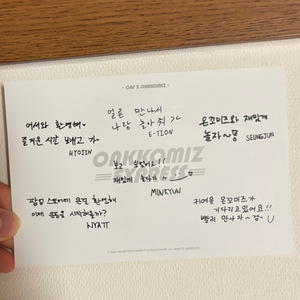 ONF X OAKKOMIZ
어서와 환영해~
즐거운 시간 보내고 가~
HYOJIN
얼른 만나서
나랑 놀아줘 ㄱㄱ
E-TION
온꼬미즈와 재밌게
놀자~
SEUNGJUN
OAKKOMIZ
EXPRESS
보고 싶었어요!!
재밌게 놀다가
MINKYUN
환영해
이제 시작해볼까?
WYATT
귀여운 온꼬미즈가
기다리고있어요!!
빨리 만나자~
U